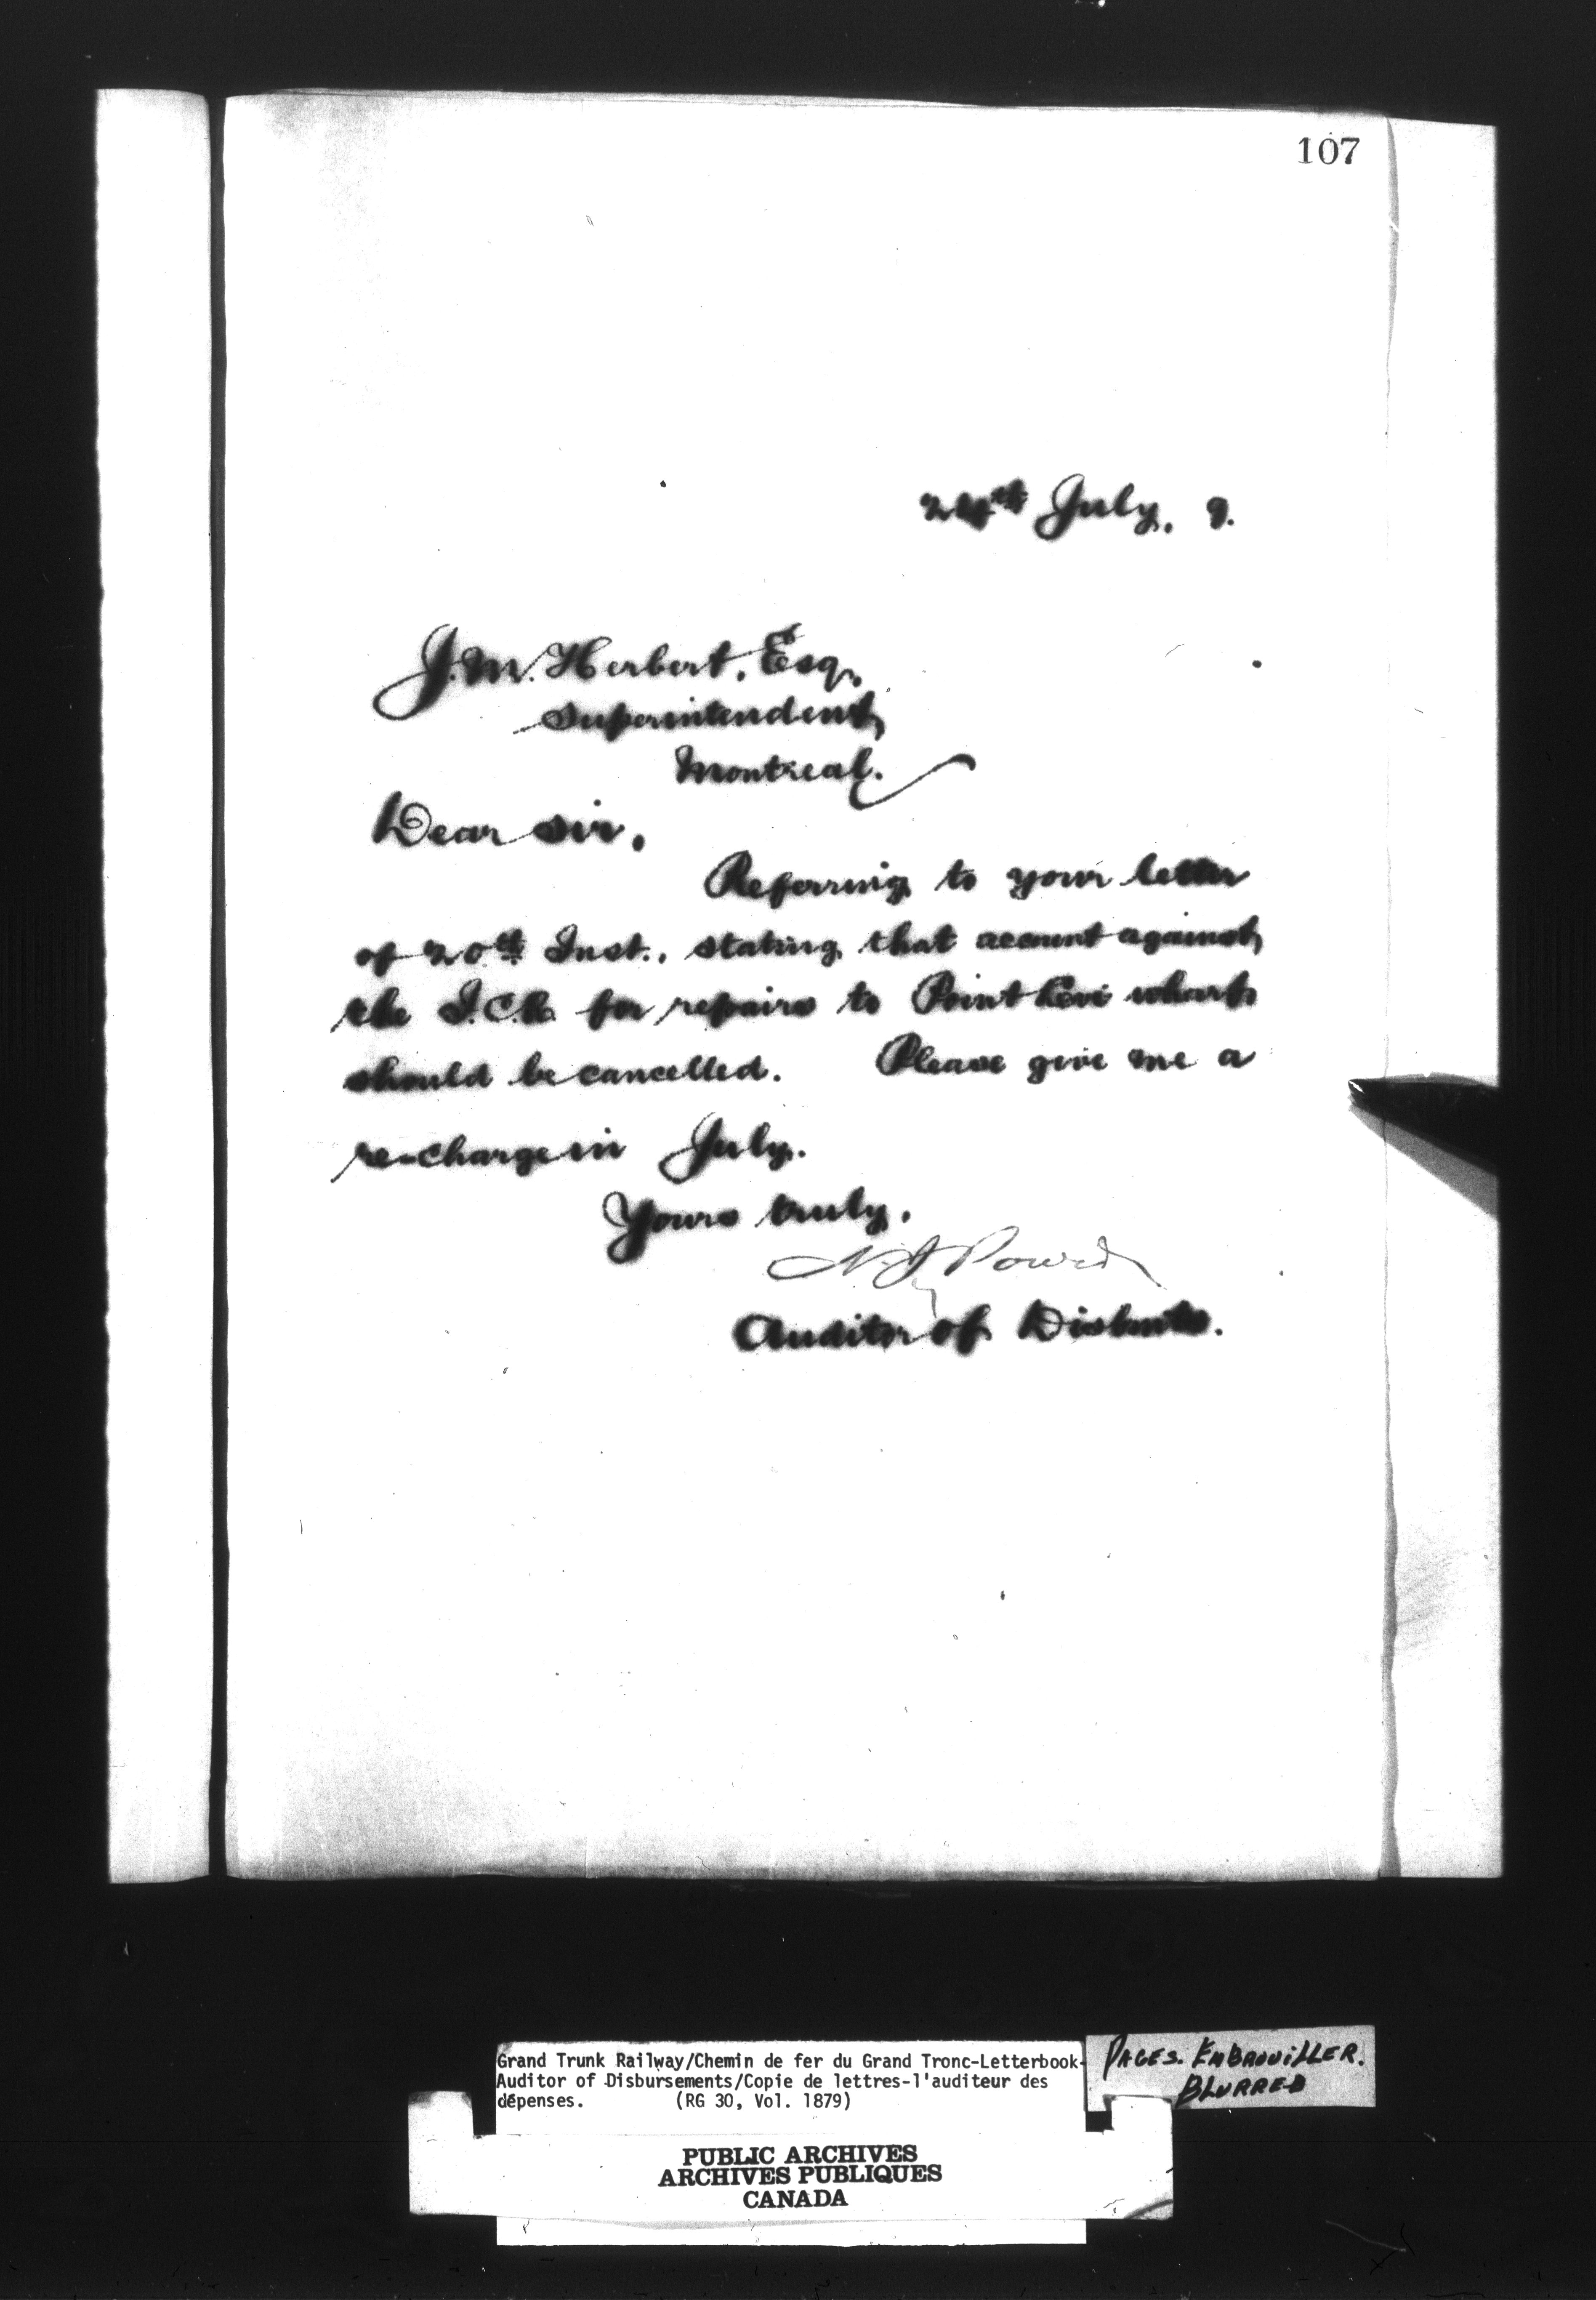 107
24th July. 9.
J.M. Herbert, Esq,
Superintendent,
Montreal.
Dear Sir,
Referring to your letter
of 20th Inst., stating that account against
the I.C.R. for repairs to Point Levi wharf
should be cancelled. Please give me a
re-charge in July.
Yours truly,
N. J. Power
Auditor of Disbmts.
Grand Trunk Railway/Chemin de fer du Grand Tronc-Letterbook-
Auditor of Disbursements/Copie de lettres-l'auditeur des
dépenses. (RG 30, Vol. 1879)
PAGES. EMBROUILLER.
BLURRED
PUBLIC ARCHIVES
ARCHIVES PUBLIQUES
CANADA